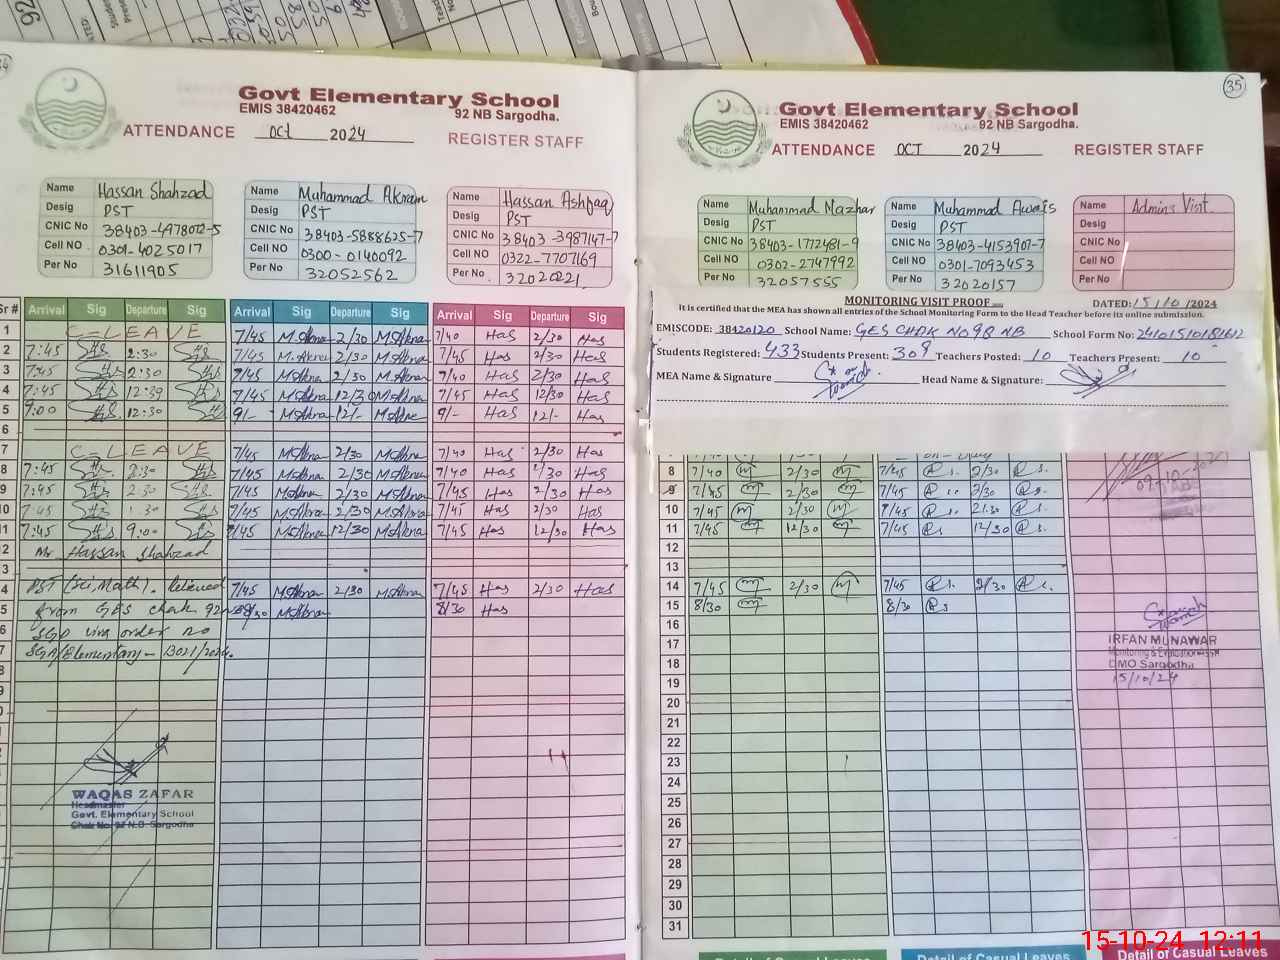 Govt Elementary School
EMIS 38420462
92 NB Sargodha.
ATTENDANCE Oct 2024 REGISTER STAFF
Name Hassan Shahzad
Desig PST
CNIC No 38403-4978072-5
Cell NO 0301-4025017
Per No 31611905
Name Muhammad Akram
Desig PST
CNIC No 38403-5888625-7
Cell NO 0300-0140092
Per No 32052562
Name Hassan Ashfaq
Desig PST
CNIC No 38403-3987147-7
Cell NO 0322-7707169
Per No 32020221
Sr # Arrival Sig Departure Sig Arrival Sig Departure Sig Arrival Sig Departure Sig
1 C=LEAVE 7/45 M.Akram 2/30 M.Akram 7/40 Has 2/30 Has
2 7:45 2:30 7/45 M.Akram 2/30 M.Akram 7/45 Has 2/30 Has
3 7:45 2:30 7/45 M.Akram 2/30 M.Akram 7/40 Has 2/30 Has
4 7:45 12:30 7/45 M.Akram 12/30 M.Akram 7/45 Has 12/30 Has
5 7:00 12:30 9/- M.Akram 12/- M.Akram 9/- Has 12/- Has
6
7 C=LEAVE 7/45 M.Akram 2/30 M.Akram 7/40 Has 2/30 Has
8 7:45 2:30 7/45 M.Akram 2/30 M.Akram 7/40 Has 2/30 Has
9 7:45 2:30 7/45 M.Akram 2/30 M.Akram 7/45 Has 2/30 Has
7:45 1:30 7/45 M.Akram 2/30 M.Akram 7/45 Has 2/30 Has
11 7:45 9:00 7/45 M.Akram 12/30 M.Akram 7/45 Has 12/30 Has
Mr Hassan Shahzad
PST (Sci, Math). Relieved 7/45 M.Akram 2/30 M.Akram 7/45 Has 2/30 Has
from GES chak 92 8/30 M.Akram 8/30 Has
SGD vim order no
SGA/Elementary-13021/2024.
WAQAS ZAFAR
Headmaster
Govt. Elementary School
Chak No. 92 N.B. Sargodha
35
Govt Elementary School
EMIS 38420462
92 NB Sargodha.
ATTENDANCE OCT 2024 REGISTER STAFF
Name Muhammad Mazhar
Desig PST
CNIC No 38403-1772481-9
Cell NO 0302-2747992
Per No 32057555
Name Muhammad Awais
Desig PST
CNIC No 38403-4153907-7
Cell NO 0301-7093453
Per No 32020157
Name Admins Visit.
Desig
CNIC No
Cell NO
Per No
MONITORING VISIT PROOF DATED: 15/10/2024
It is certified that the MEA has shown all entries of the School Monitoring Form to the Head Teacher before its online submission.
EMISCODE: 38420120 School Name: GES CHAK NO 98 NB School Form No: 24101510181612
Students Registered: 433 Students Present: 309 Teachers Posted: 10 Teachers Present: 10
MEA Name & Signature Head Name & Signature:
8 7/40 2/30 7/45 2/30
9 7/45 2/30 7/45 2/30
10 7/45 2/30 7/45 2:30
11 7/45 12/30 7/45 12/30
12
13
14 7/45 2/30 7/45 2/30
15 8/30 8/30
16
17
18
19
20
21
22
23
24
25
26
27
28
29
30
31
IRFAN MUNAWAR
DMO Sargodha
15/10/24
Detail of Casual Leaves
Detail of Casual Leaves
Detail of Casual Leaves
15-10-24 12:11